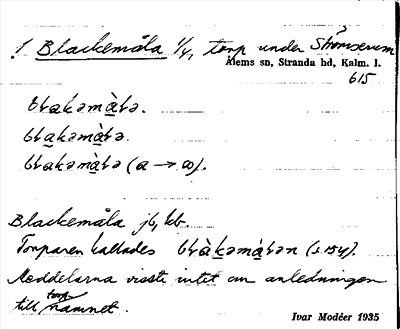 ! Blackemåla 1/4, torp under Strömserum
Ålems sn, Stranda hd, Kalm. l.
615
blakəmàla.
blakəmàla.
blakəmàla (a → ɷ).
Blackemåla jb, kb.
Torparen kallades blàkəmàlən (s. 154).
Meddelarna visste intet om anledningen
till torpnamnet.
Ivar Modéer 1935